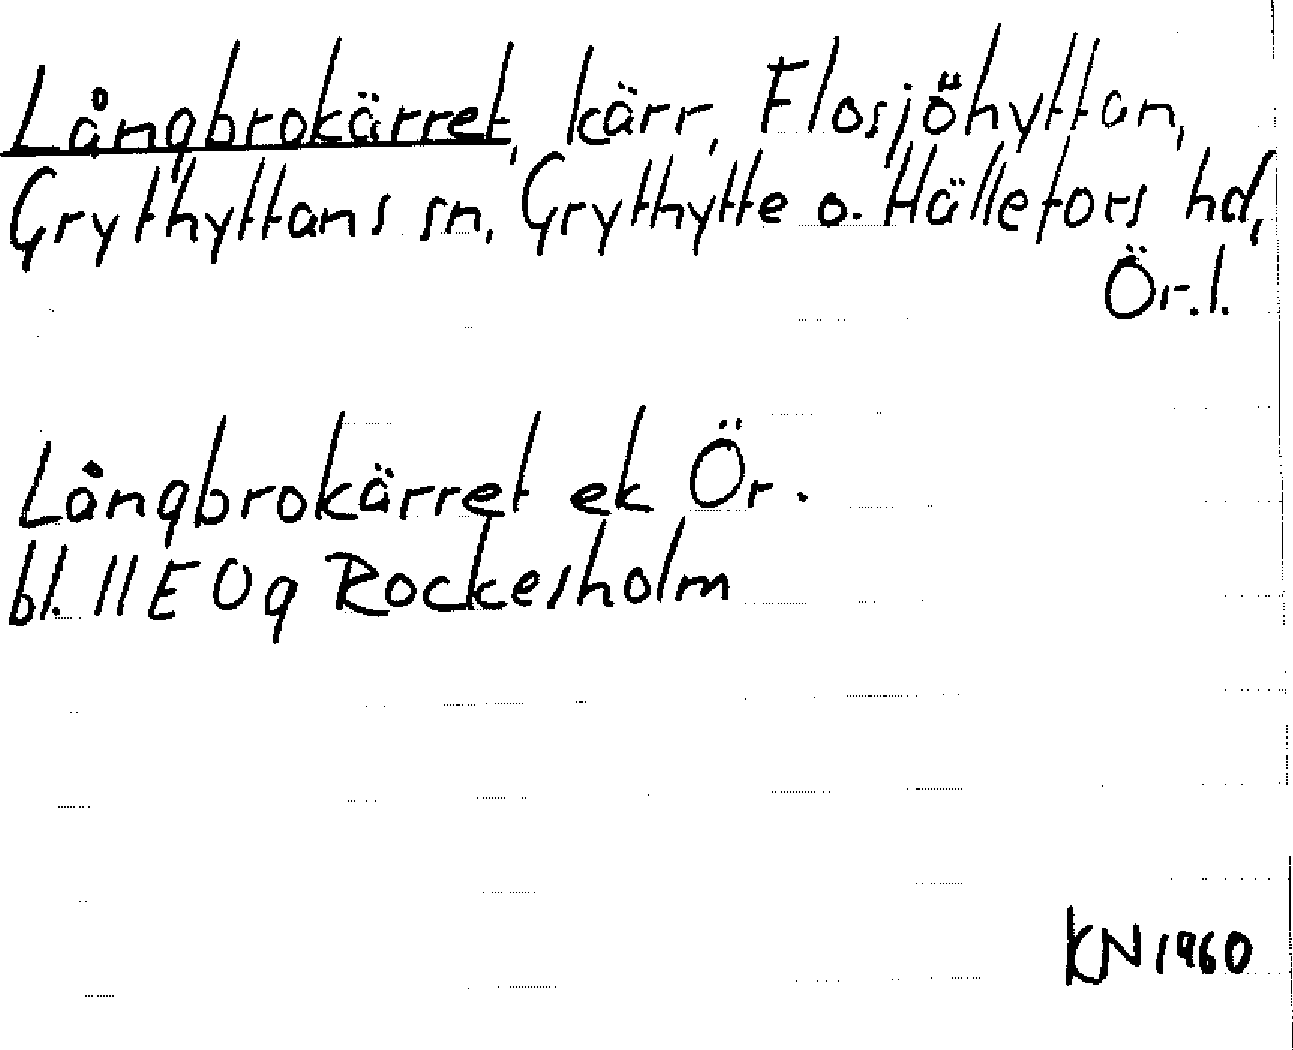 Långbrokärret, kärr, Flosjöhyttan,
Grythyttans sn, Grythytte o. Hällefors hd,
Ör.l.
Långbrokärret ek Ör.
bl. 11E 0g Rockesholm
KN 1960